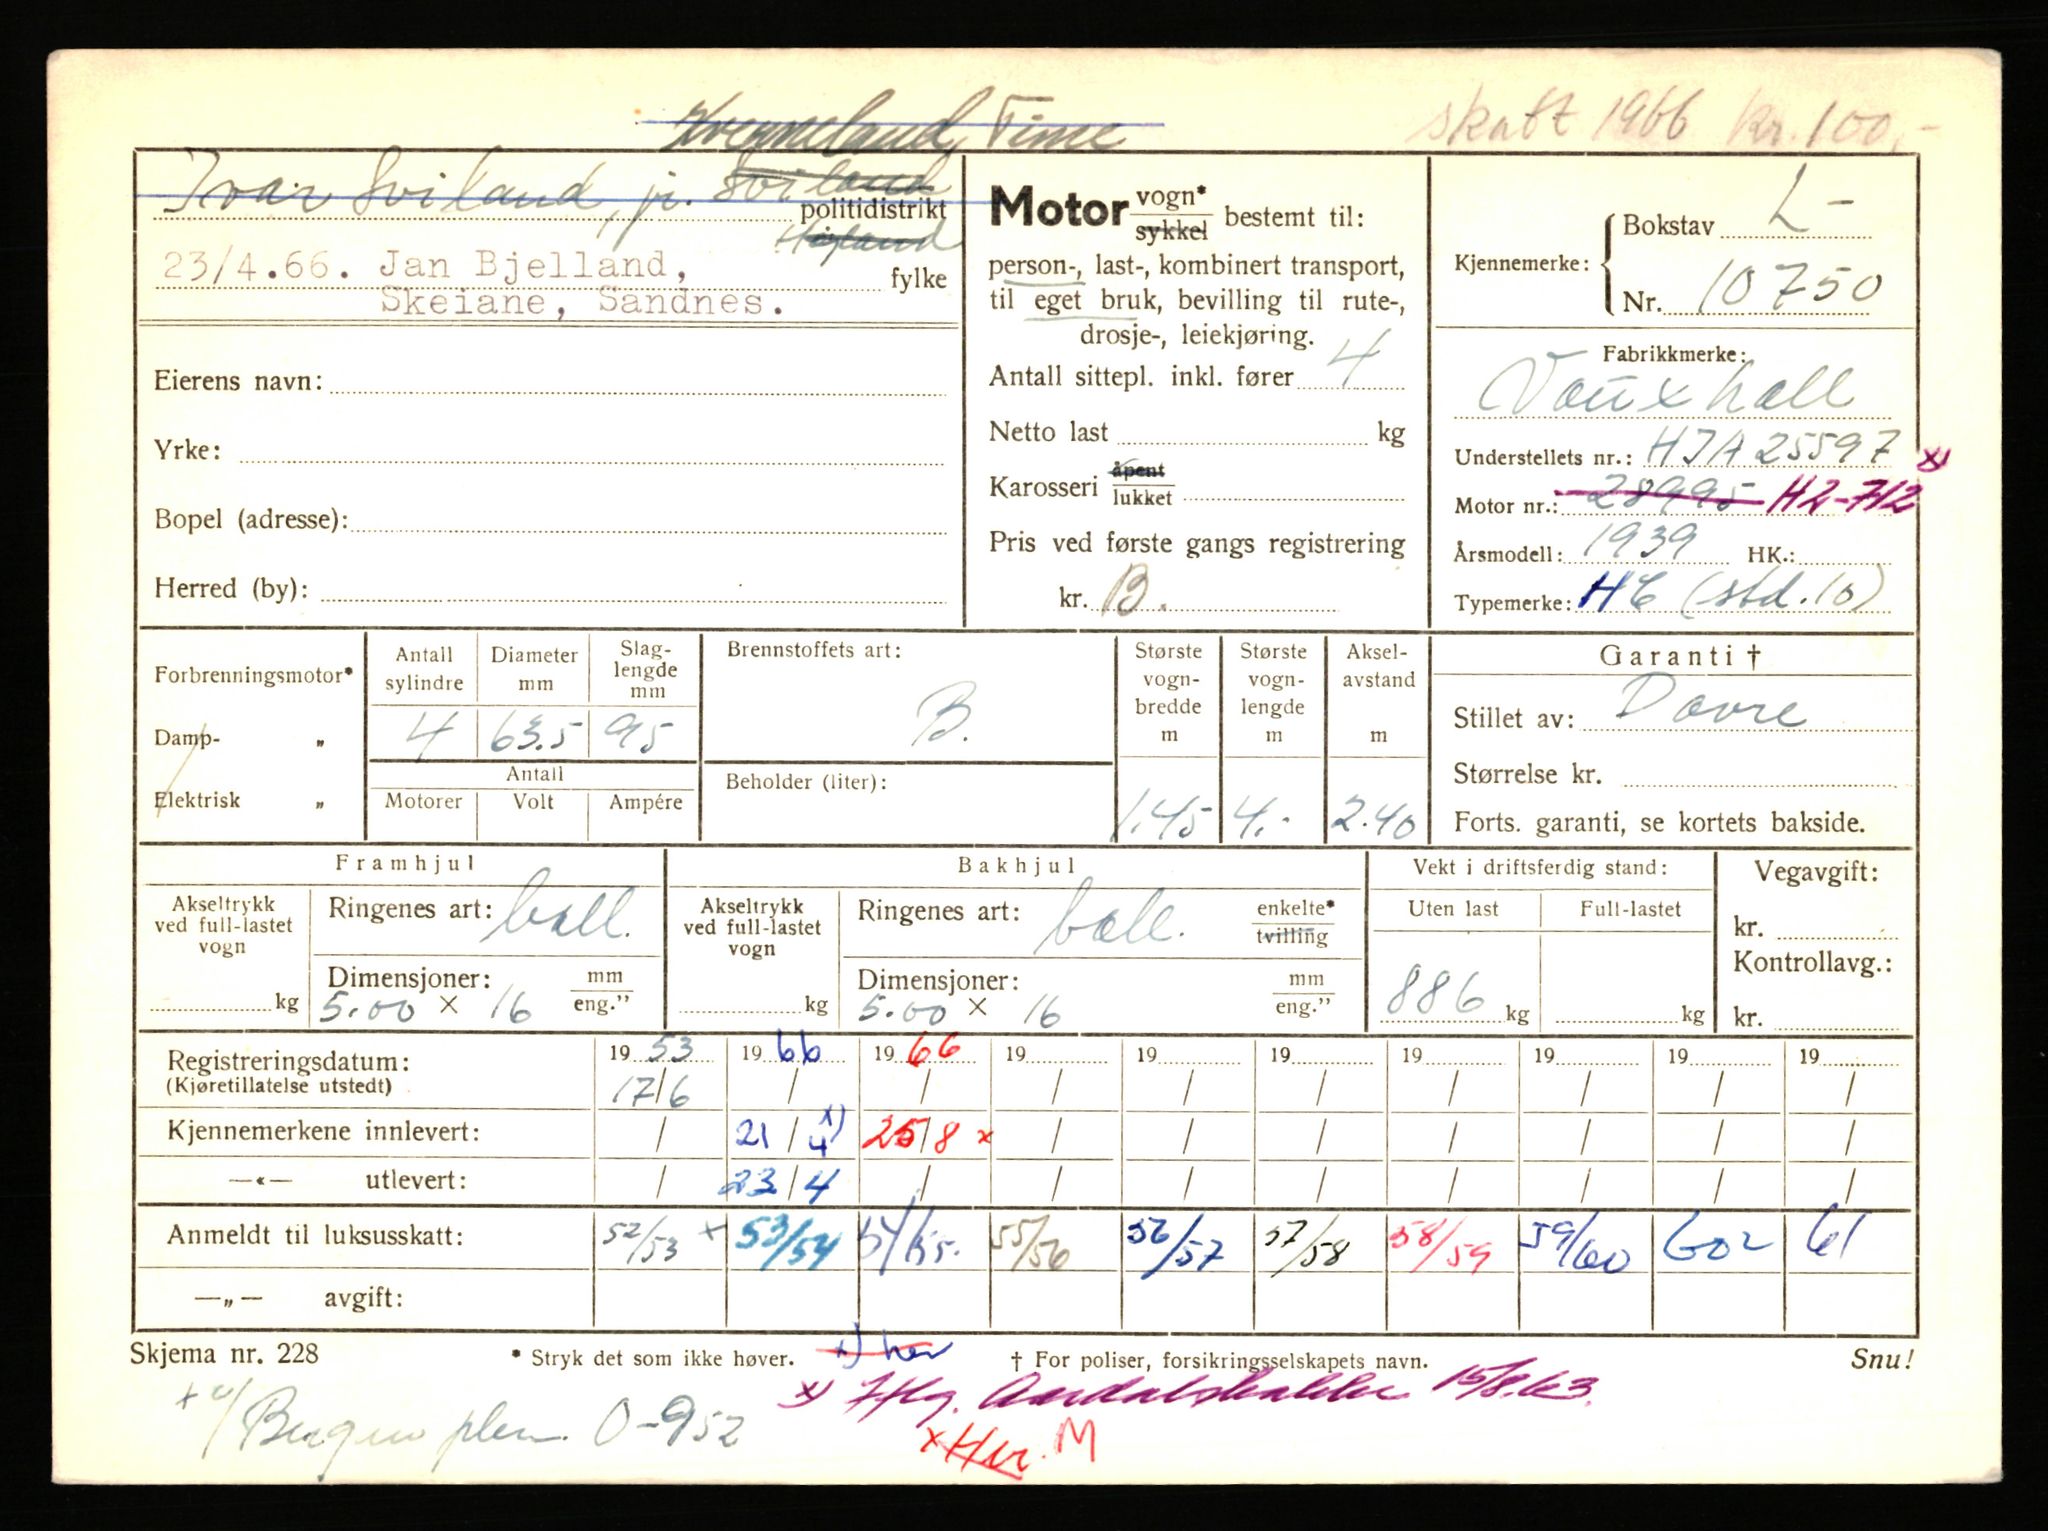 Kverneland, Time
skatt 1966 kr. 100,-
Ivar Sviland, jr. Sviland
politidistrikt
Høyland
23/4.66. Jan Bjelland,
fylke
Skeiane, Sandnes.
Eierens navn:
Yrke:
Bopel (adresse):
Herred (by):
Motor vogn* sykkel bestemt til:
person-, last-, kombinert transport,
til eget bruk, bevilling til rute-,
drosje-, leiekjøring.
Antall sittepl. inkl. fører 4
Netto last kg
Karosseri åpent lukket
Pris ved første gangs registrering
kr. B.
Kjennemerke: Bokstav L-
Nr. 10750
Fabrikkmerke:
Vauxhall
Understellets nr.: HIA 25597 x)
Motor nr.: 28995 H2-712
Årsmodell: 1939 HK.:
Typemerke: H6 (std. 10)
Forbrenningsmotor*
Damp- „
Elektrisk „
Antall sylindre
Diameter mm
Slaglengde mm
4 63.5 95
Antall
Motorer Volt Ampére
Brennstoffets art:
B.
Beholder (liter):
Største vognbredde m
1.45
Største vognlengde m
4.-
Akselavstand m
2.40
Garanti †
Stillet av: Dovre
Størrelse kr.
Forts. garanti, se kortets bakside.
Framhjul
Akseltrykk ved full-lastet vogn
kg
Ringenes art: ball.
Dimensjoner: mm eng.”
5.00 x 16
Bakhjul
Akseltrykk ved full-lastet vogn
kg
Ringenes art: ball. enkelte* tvilling
Dimensjoner: mm eng.”
5.00 x 16
Vekt i driftsferdig stand:
Uten last Full-lastet
886 kg kg
Vegavgift:
kr.
Kontrollavg.:
kr.
Registreringsdatum: 1953 1966 1966 19 19 19 19 19 19 19
(Kjøretillatelse utstedt) 17/6 / / / / / / / / /
Kjennemerkene innlevert: / 21/4 x) 25/8 x / / / / / / /
—«— utlevert: / 23/4 / / / / / / / /
Anmeldt til luksusskatt: 52/53 x 53/54 54/55. 55/56 56/57 57/58 58/59 59/60 602 61
—„— avgift:
Skjema nr. 228 * Stryk det som ikke høver. x) her † For poliser, forsikringsselskapets navn. Snu!
x) 15/8.63.
Bergen 0-952
x Her. M